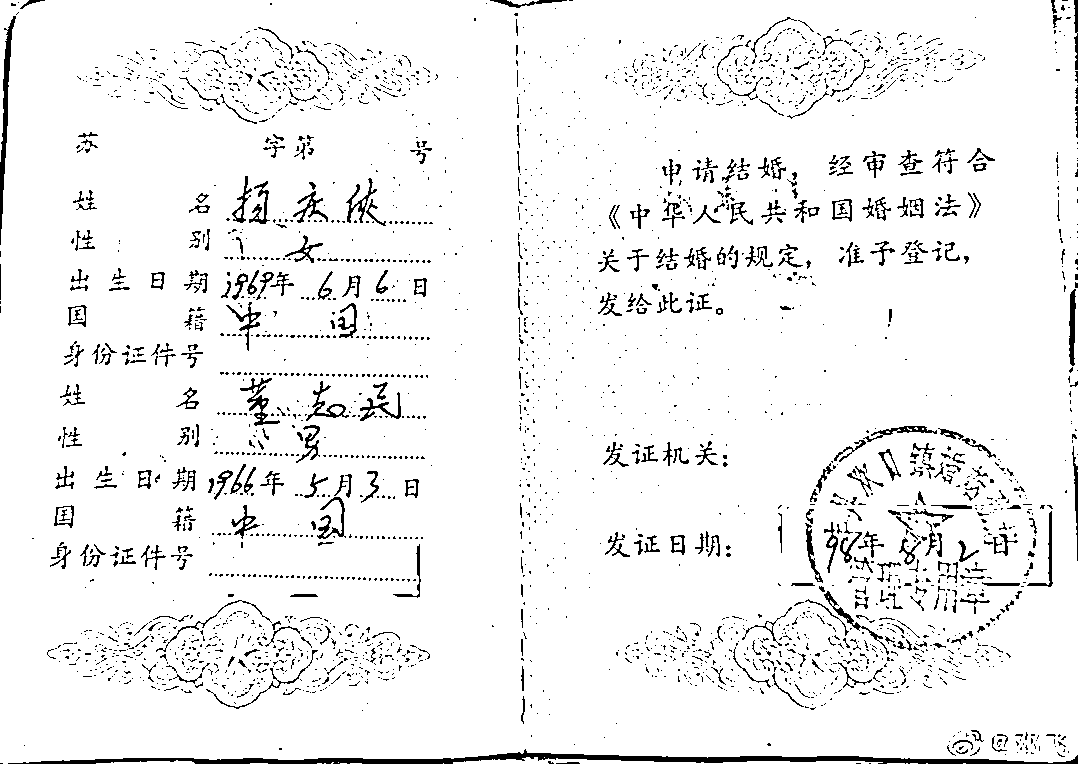 苏 字第 号
姓名 杨庆侠
性别 女
出生日期 1969年6月6日
国籍 中国
身份证件号
姓名 董志民
性别 男
出生日期 1966年5月3日
国籍 中国
身份证件号
申请结婚，经审查符合
《中华人民共和国婚姻法》
关于结婚的规定，准予登记，
发给此证。
发证机关：
发证日期： 98年8月2日
管理专用章